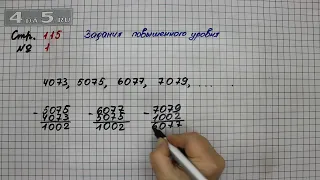 4 НА 5.RU
Стр. 115 Задания повышенного уровня
№ 1
4073, 5075, 6077, 7079, ...
- 5075 - 6077 - 7079
4073 5075 1002
1002 1002 6077